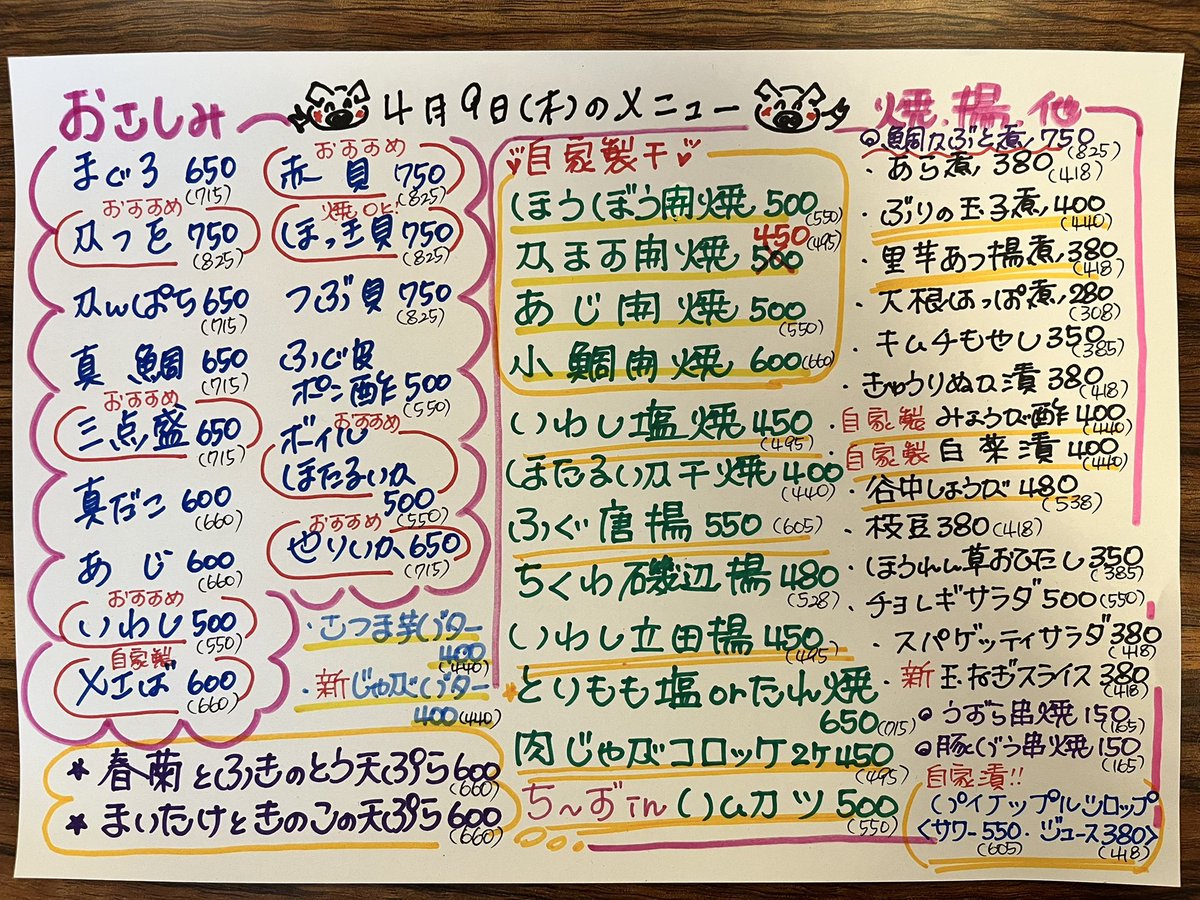 4月9日(木)のメニュー
おさしみ
まぐろ 650
(715)
おすすめ
かつを 750
(825)
かんぱち 650
(715)
真鯛 650
(715)
おすすめ
三点盛 650
(715)
真だこ 600
(660)
あじ 600
(660)
おすすめ
いわし 500
(550)
自家製
〆さば 600
(660)
おすすめ
赤貝 750
(825)
焼OK!
ほっき貝 750
(825)
つぶ貝 750
(825)
ふぐ皮
ポン酢 500
(550)
おすすめ
ボイル
ほたるいか
500
(550)
おすすめ
やりいか 650
(715)
・さつま芋バター
400
(440)
・新じゃがバター
400(440)
★春菊とふきのとう天ぷら 600
(660)
★まいたけときのこの天ぷら 600
(660)
自家製干
ほうぼう開焼 500
(550)
かます開焼 500 450
(495)
あじ開焼 500
(550)
小鯛開焼 600(660)
いわし塩焼 450
(495)
ほたるいか干焼 400
(440)
ふぐ唐揚 550 (605)
ちくわ磯辺揚 480
(528)
いわし立田揚 450
(495)
★とりもも塩orたれ焼
650(715)
肉じゃがコロッケ2ケ 450
(495)
ち〜ずinハムカツ 500
(550)
焼.揚.他
◎鯛かぶと煮 750
(825)
・あら煮 380
(418)
・ぶりの玉子煮 400
(440)
・里芋あつ揚煮 380
(418)
・大根はっぱ煮 280
(308)
・キムチもやし 350
(385)
・きゅうりぬか漬 380
(418)
・自家製 みょうが酢 400
(440)
・自家製 白菜漬 400
(440)
・谷中しょうが 480
(538)
・枝豆 380(418)
・ほうれん草おひたし 350
(385)
・チョレギサラダ 500(550)
・スパゲッティサラダ 380
(418)
・新玉ねぎスライス 380
(418)
◎うずら串焼 150
(165)
◎豚バラ串焼 150
(165)
自家漬!!
パイナップルシロップ
<サワー 550・ジュース 380>
(605) (418)